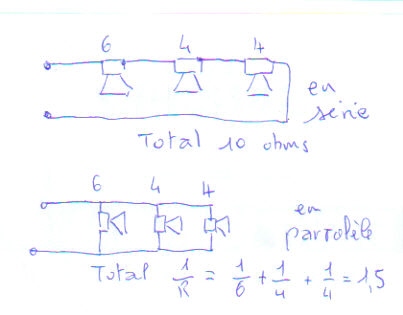 6 4 4
en
série
Total 10 ohms
6 4 4
en
parrolèle
Total 1/R = 1/6 + 1/4 + 1/4 = 1,5